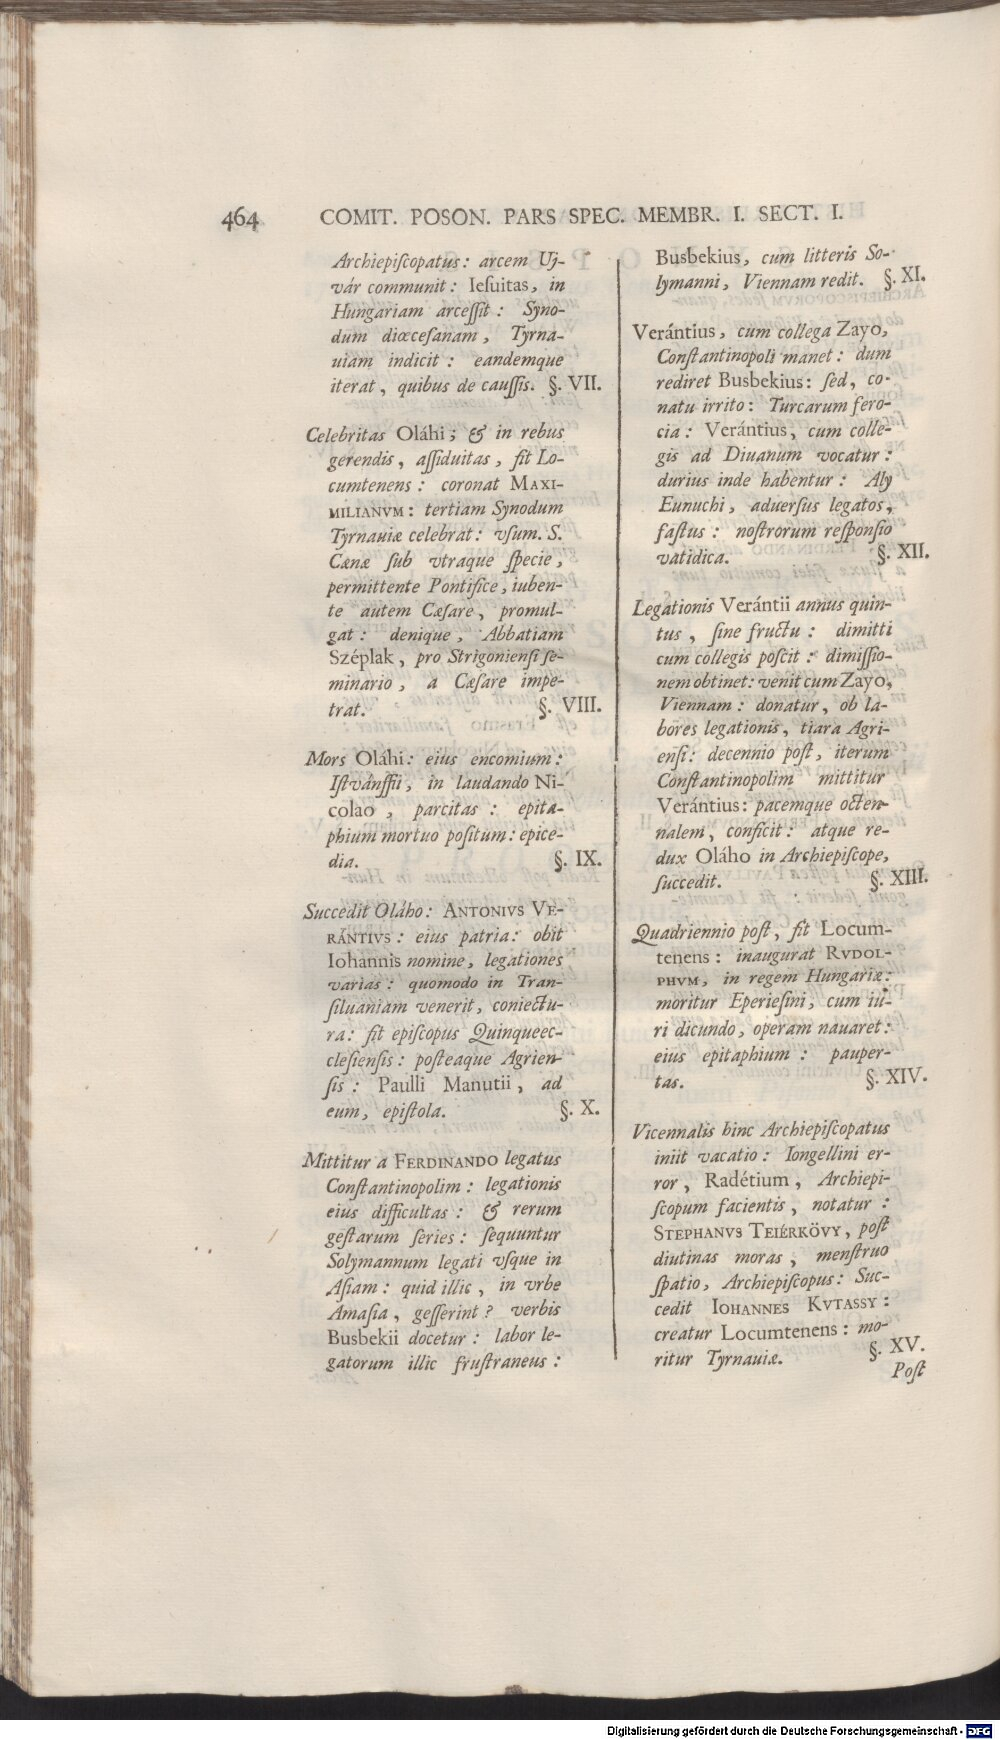 464 COMIT. POSON. PARS SPEC. MEMBR. I. SECT. I.
Archiepiſcopatus: arcem Uj-
vár communit: Ieſuitas, in
Hungariam arceſſit: Syno-
dum diœceſanam, Tyrna-
uiam indicit: eandemque
iterat, quibus de cauſſis. §. VII.
Celebritas Oláhi; & in rebus
gerendis, aſſiduitas, fit Lo-
cumtenens: coronat MAXI-
MILIANVM: tertiam Synodum
Tyrnauiæ celebrat: vſum. S.
Cænæ ſub vtraque ſpecie,
permittente Pontifice, iuben-
te autem Cæſare, promul-
gat: denique, Abbatiam
Széplak, pro Strigonienſi ſe-
minario, a Cæſare impe-
trat. §. VIII.
Mors Oláhi: eius encomium:
Iſtvánffii, in laudando Ni-
colao, parcitas: epita-
phium mortuo poſitum: epice-
dia. §. IX.
Succedit Oláho: ANTONIVS VE-
RÁNTIVS: eius patria: obit
Iohannis nomine, legationes
varias: quomodo in Tran-
ſiluaniam venerit, coniectu-
ra: fit epiſcopus Quinqueec-
cleſienſis: poſteaque Agrien-
ſis: Paulli Manutii, ad
eum, epiſtola. §. X.
Mittitur a FERDINANDO legatus
Conſtantinopolim: legationis
eius difficultas: & rerum
geſtarum ſeries: ſequuntur
Solymannum legati vſque in
Aſiam: quid illic, in vrbe
Amaſia, geſſerint? verbis
Busbekii docetur: labor le-
gatorum illic fruſtraneus:
Busbekius, cum litteris So-
lymanni, Viennam redit. §. XI.
Verántius, cum collega Zayo,
Conſtantinopoli manet: dum
rediret Busbekius: ſed, co-
natu irrito: Turcarum fero-
cia: Verántius, cum colle-
gis ad Diuanum vocatur:
durius inde habentur: Aly
Eunuchi, aduerſus legatos,
faſtus: noſtrorum reſponſio
vatidica. §. XII.
Legationis Verántii annus quin-
tus, ſine fructu: dimitti
cum collegis poſcit: dimiſſio-
nem obtinet: venit cum Zayo,
Viennam: donatur, ob la-
bores legationis, tiara Agri-
enſi: decennio poſt, iterum
Conſtantinopolim mittitur
Verántius: pacemque octen-
nalem, conficit: atque re-
dux Oláho in Archiepiſcope,
ſuccedit. §. XIII.
Quadriennio poſt, fit Locum-
tenens: inaugurat RVDOL-
PHVM, in regem Hungariæ:
moritur Eperieſini, cum iu-
ri dicundo, operam nauaret:
eius epitaphium: pauper-
tas. §. XIV.
Vicennalis hinc Archiepiſcopatus
iniit vacatio: Iongellini er-
ror, Radétium, Archiepi-
ſcopum facientis, notatur:
STEPHANVS TEIÉRKÖVY, poſt
diutinas moras, menſtruo
ſpatio, Archiepiſcopus: Suc-
cedit IOHANNES KVTASSY:
creatur Locumtenens: mo-
ritur Tyrnauiæ. §. XV.
Poſt
Digitalisierung gefördert durch die Deutsche Forschungsgemeinschaft - DFG